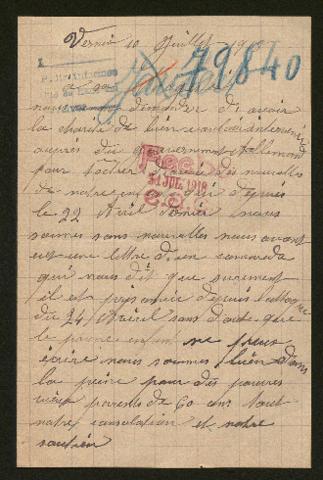 Vernio 10 Juillet 1918
79840
nous demander d'avoir
la charité de bien vouloir intervenir
auprès du gouvernement allemand
pour tacher d'avoir des nouvelles
de notre enfant qui depuis
le 22 Avril dernier nous
sommes sans nouvelles nous avons
eut une lettre d'un camarade
qui nous dit que surement
il est prisonnier depuis l'attaque
du 24 Avril sans doute que
le pauvre enfant ne peus
écrire nous sommes bien dans
la peine pour des pauvres
vieux parents de 60 ans tout
notre consolation et notre
soutien
Reçu
31 JUIL 1918